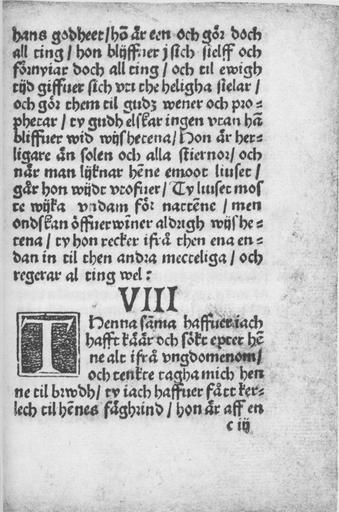 hans godheet / hō är een och gör doch
all ting / hon blijffuer j sich sielff och
förnyiar doch all ting / och til ewigh
tijd giffuer sich vti the heligha sielar /
och gör them til gudz wener och pro=
phetar / ty gudh elskar ingen vtan hā
bliffuer wid wijshetena / Hon är her=
ligare än solen och alla stiernor / och
når man lijknar hēne emoot liuset /
går hon wijdt vtofuer / Ty liuset mos
te wijka vndam för nattēne / men
ondskan öffuerwiner aldrigh wijshe=
tena / ty hon recker ifrå then ena en=
dan in til then andra mecteliga / och
regerar al ting wel :
VIII
THenna sāma haffuer iach
hafft käär och sökt epter hē
ne alt ifrå vngdomenom /
och tenkte tagha mich hen
ne til brwdh / ty iach haffuer fått ker=
lech til hēnes fäghrind / hon är aff en
c iij